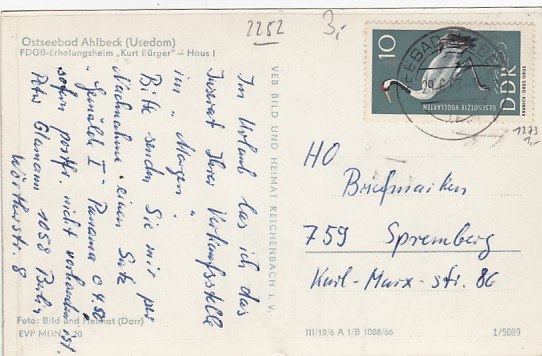 2252
3,-
Ostseebad Ahlbeck (Usedom)
FDGB-Erholungsheim „Kurt Bürger" – Haus 1
Im Urlaub las ich das
Inserat Ihrer Verkaufsstelle
im „Morgen".
Bitte senden Sie mir per
Nachnahme einen Satz
„Gemälde I" – Panama
sofern postfr. nicht vorhanden ist.
1058 Berlin
Wörtherstr. 8
Foto: Bild und Heimat (Darr)
EVP MDN 0,20
VEB BILD UND HEIMAT REICHENBACH I. V.
10
DDR
GESCHÜTZTE VOGELARTEN
KRANICH · GRUS GRUS
1273
1,-
HO
Briefmarken
759 Spremberg
Karl-Marx-Str. 86
III/18/6 A 1/B 1008/66
1/5089